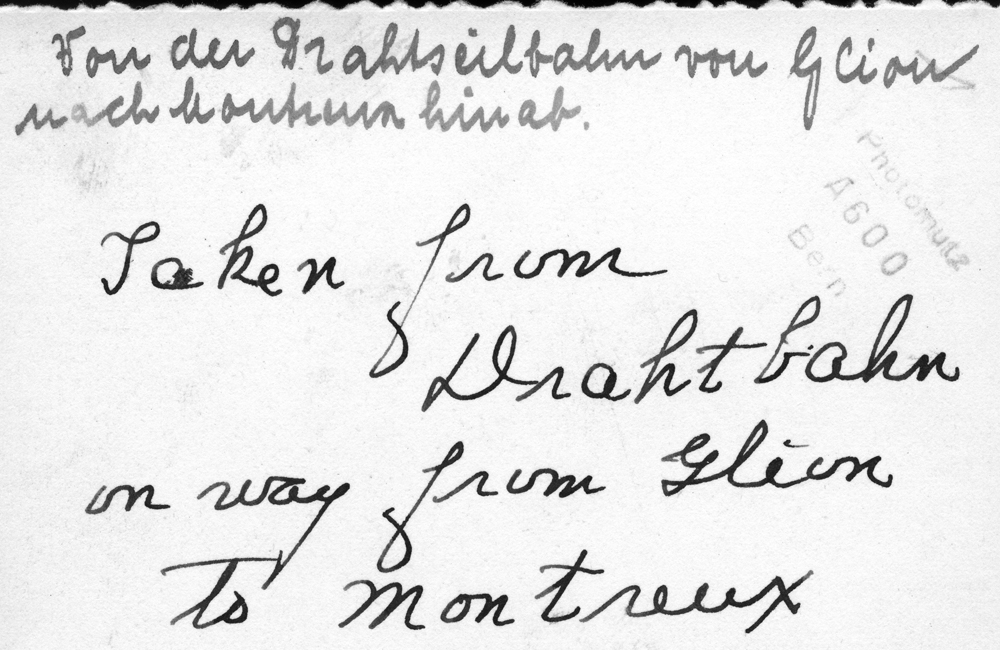 Von der Drahtseilbahn von Glion
nach Montreux hinab.
Photomutz
A600
Bern
Taken from
Drahtbahn
on way from Glion
to Montreux